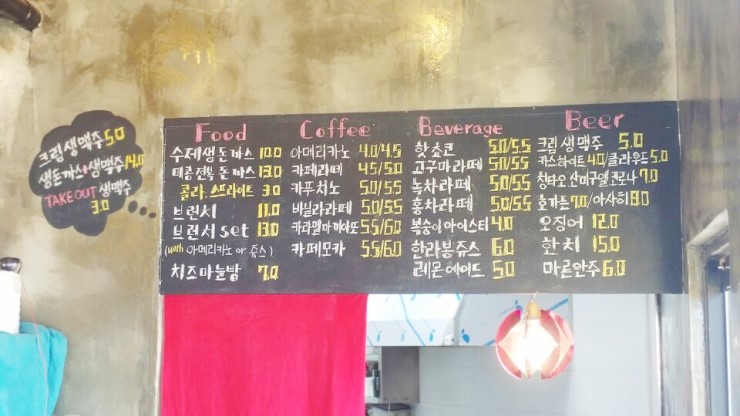 크림생맥주 5.0
생돈까스+생맥주 14.0
TAKE OUT 생맥주
3.0
Food
수제생돈까스 10.0
콜라, 스프라이트 3.0
브런치 11.0
브런치 set 13.0
(with 아메리카노 or 쥬스)
치즈마늘빵 7.0
Coffee
아메리카노 4.0/4.5
카페라떼 4.5/5.0
카푸치노 5.0/5.5
바닐라라떼 5.0/5.5
카라멜마끼아또 5.5/6.0
카페모카 5.5/6.0
Beverage
핫쵸코 5.0/5.5
고구마라떼 5.0/5.5
녹차라떼 5.0/5.5
홍차라떼 5.0/5.5
복숭아아이스티 4.0
한라봉쥬스 6.0
레몬에이드 5.0
Beer
크림생맥주 5.0
카스하이트 4.0/클라우드 5.0
칭타오,산미구엘,코로나 7.0
호가든 7.0/아사히 8.0
오징어 12.0
한치 15.0
마른안주 6.0